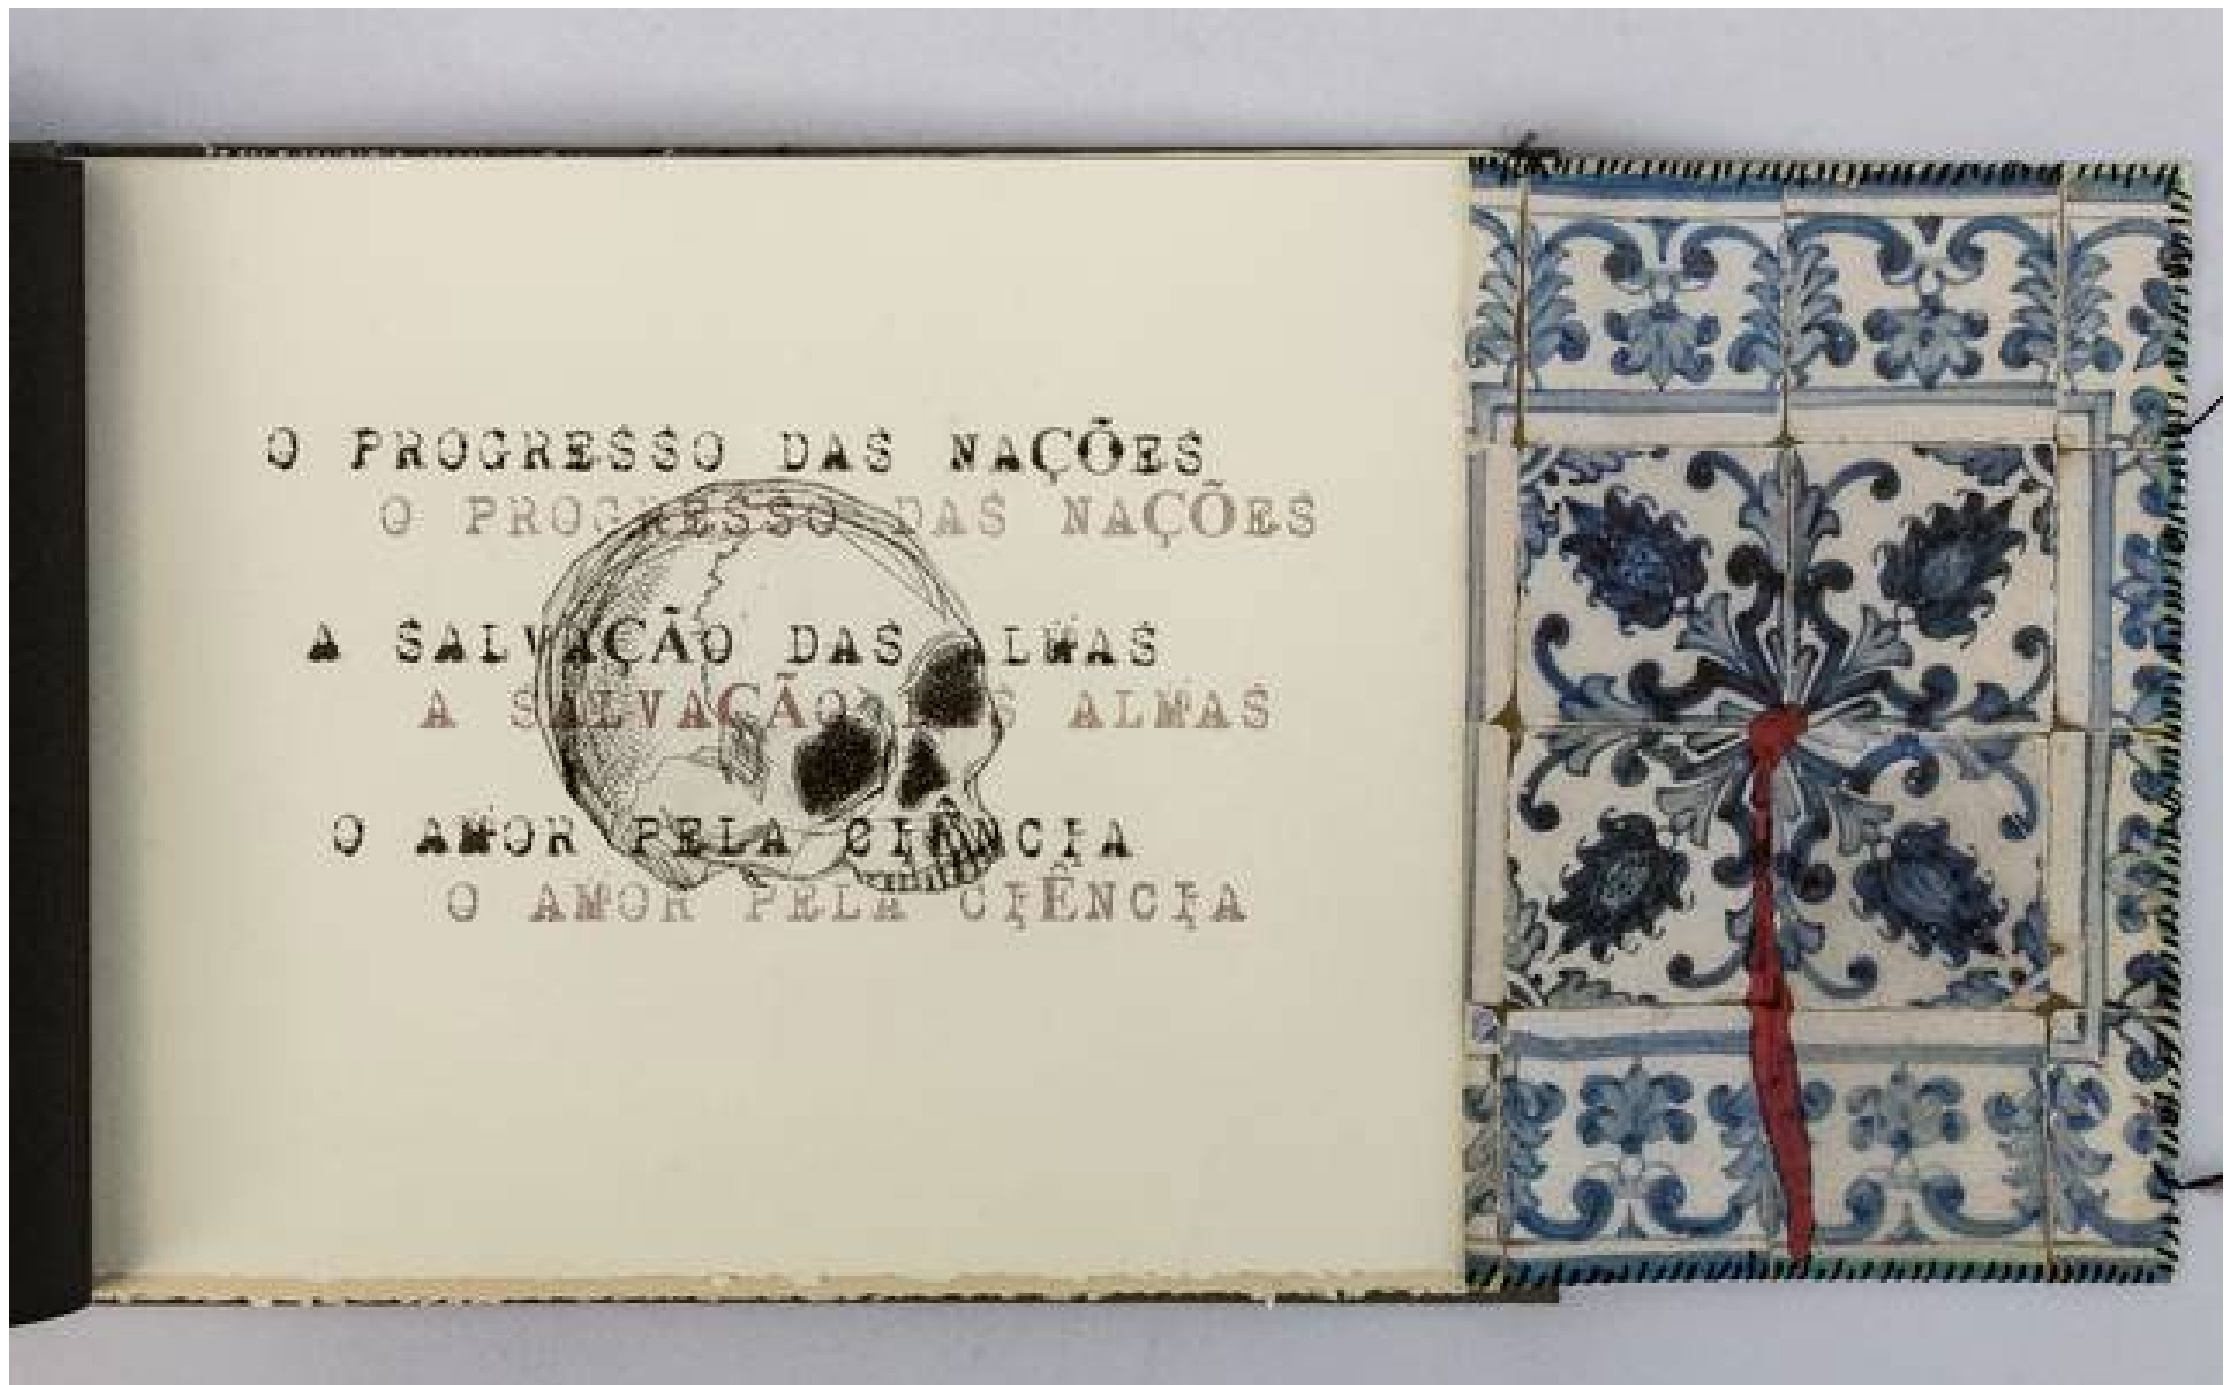 O PROGRESSO DAS NAÇÕES
O PROGRESSO DAS NAÇÕES
A SALVAÇÃO DAS ALMAS
A SALVAÇÃO DAS ALMAS
O AMOR PELA CIÊNCIA
O AMOR PELA CIÊNCIA